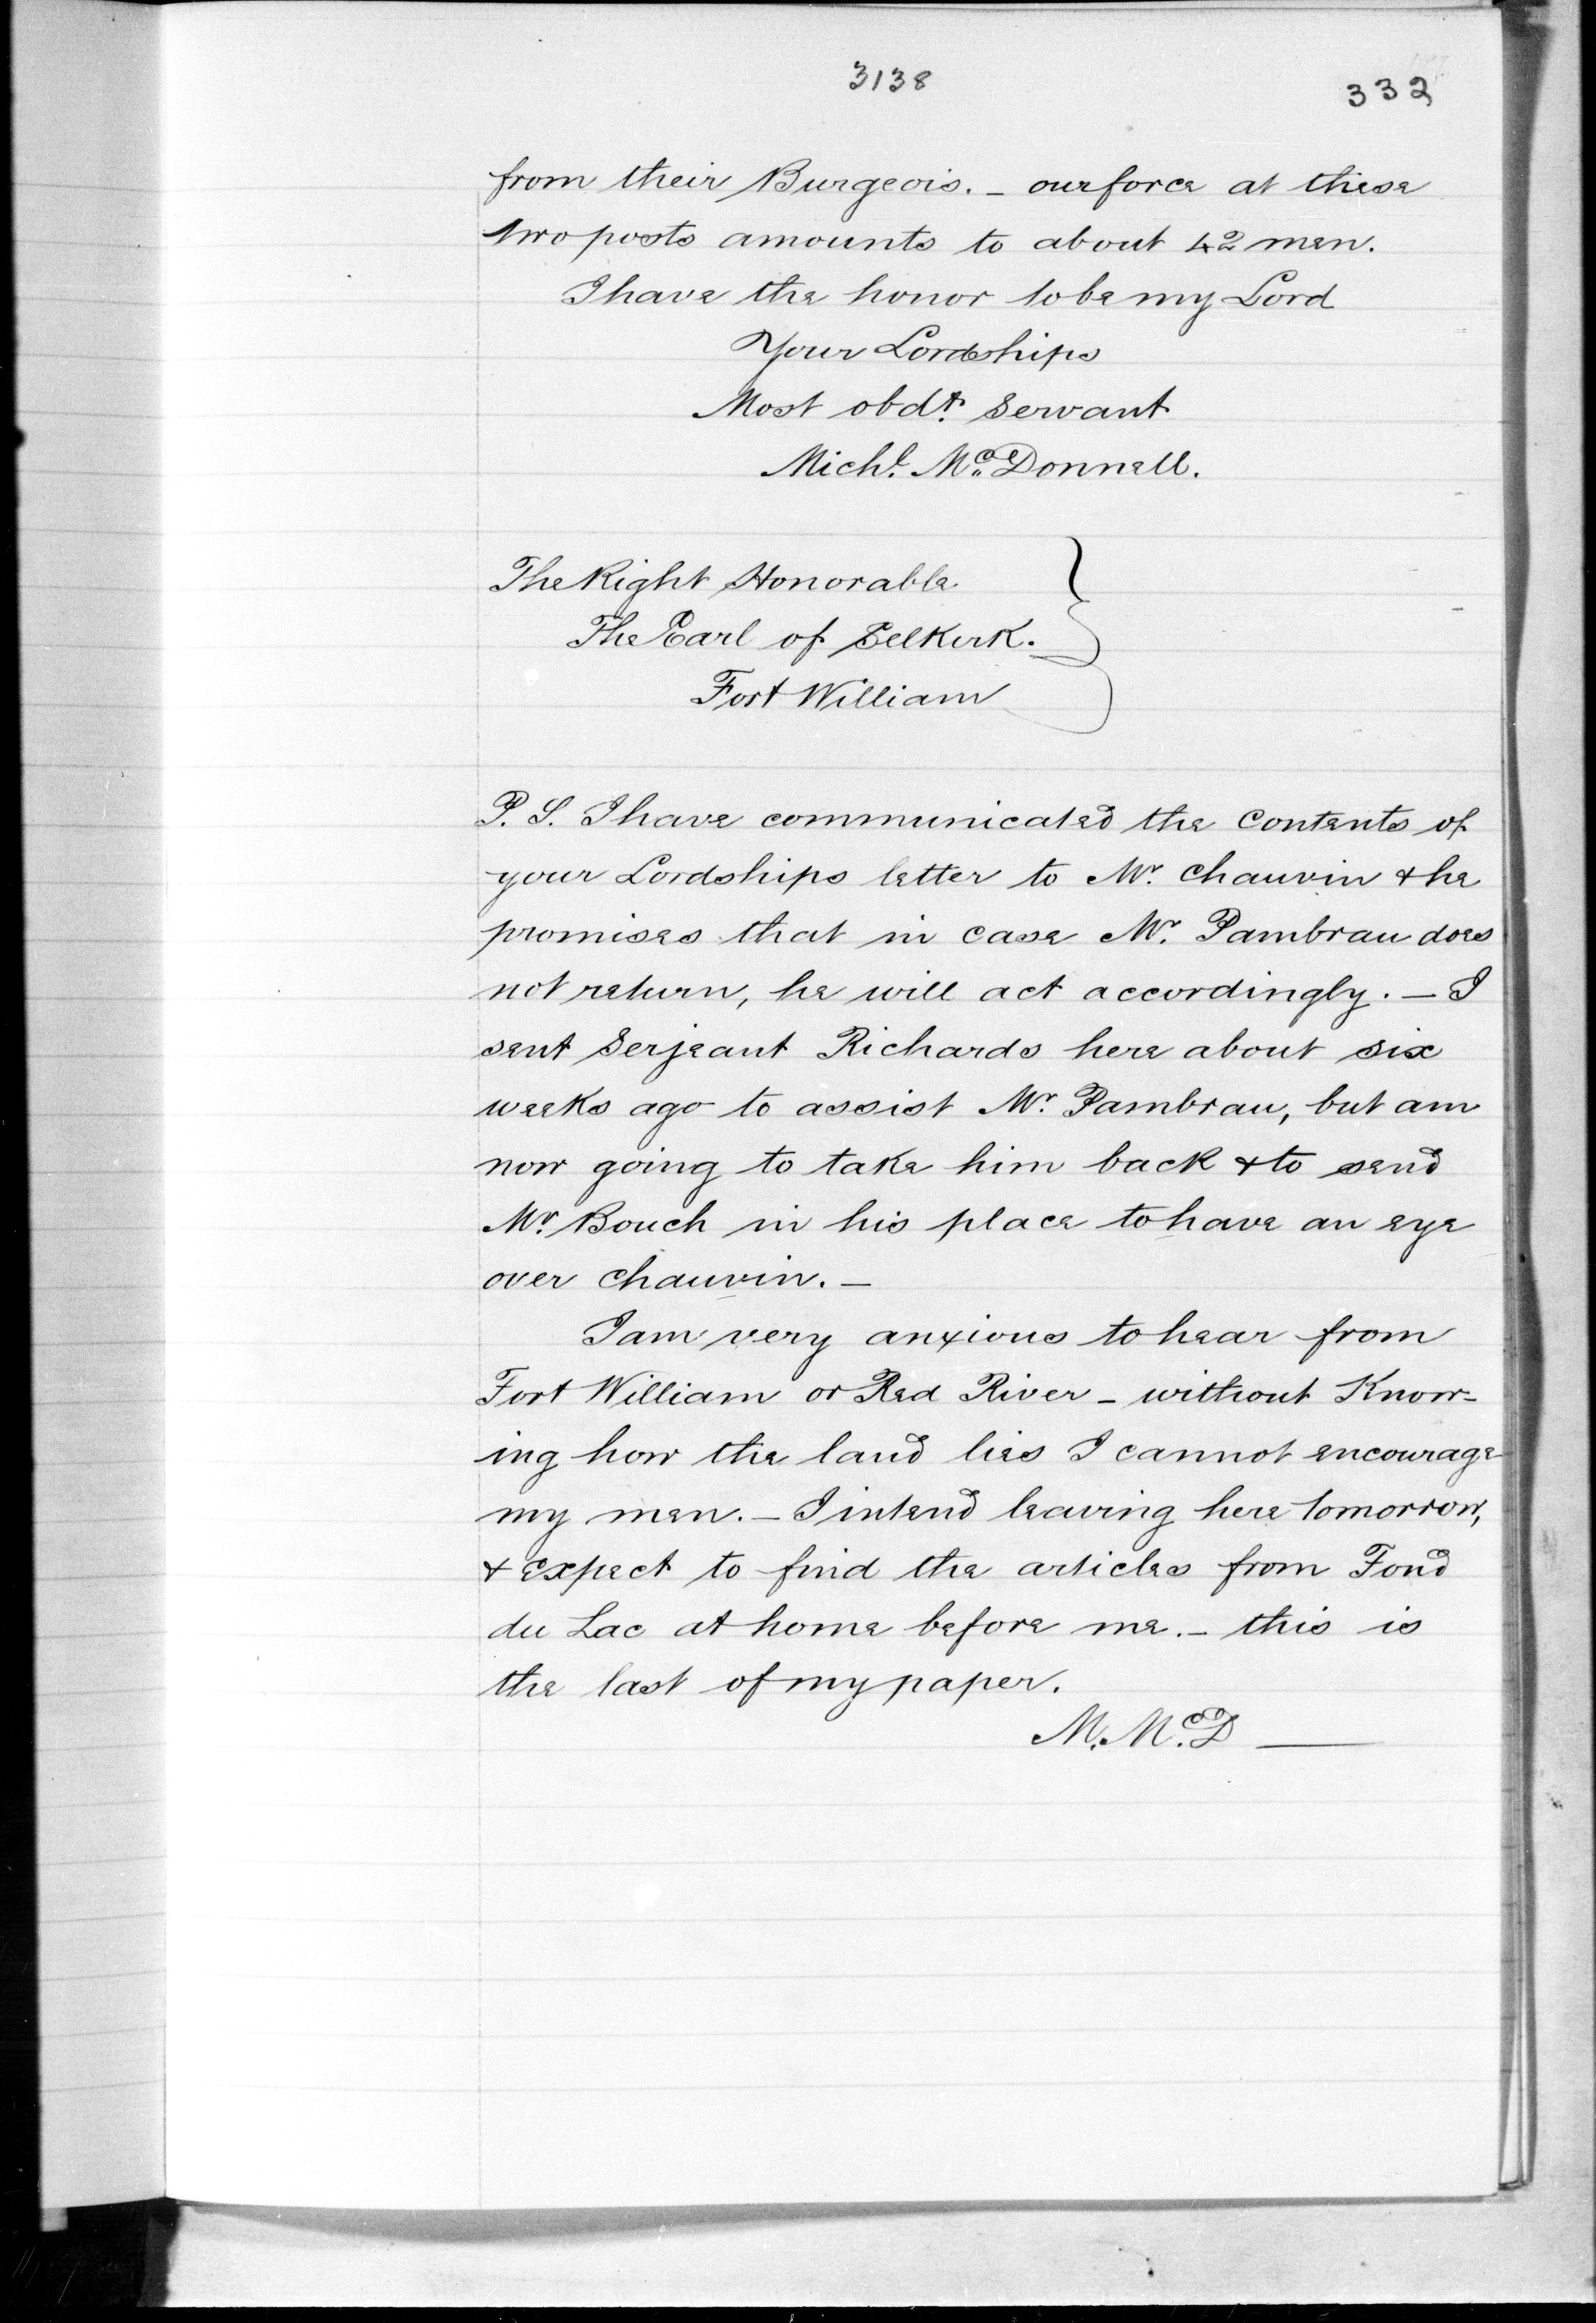 3138
332
from their Burgeois. - our force at these
two posts amounts to about 42 men.
I have the honor to be my Lord
Your Lordships
Most obdt. Servant
Michl. McDonnell.
The Right Honorable
The Earl of Selkirk.
Fort William
P. S. I have communicated the contents of
your Lordships letter to Mr. Chauvin & he
promises that in case Mr. Pambrau does
not return, he will act accordingly. - I
sent Serjeant Richards here about six
weeks ago to assist Mr. Pambrau, but am
now going to take him back & to send
Mr. Bouch in his place to have an eye
over Chauvin. -
I am very anxious to hear from
Fort William or Red River - without Know-
ing how the land lies I cannot encourage
my men. - I intend leaving here tomorrow,
& expect to find the articles from Fond
du Lac at home before me. - this is
the last of my paper.
M. McD